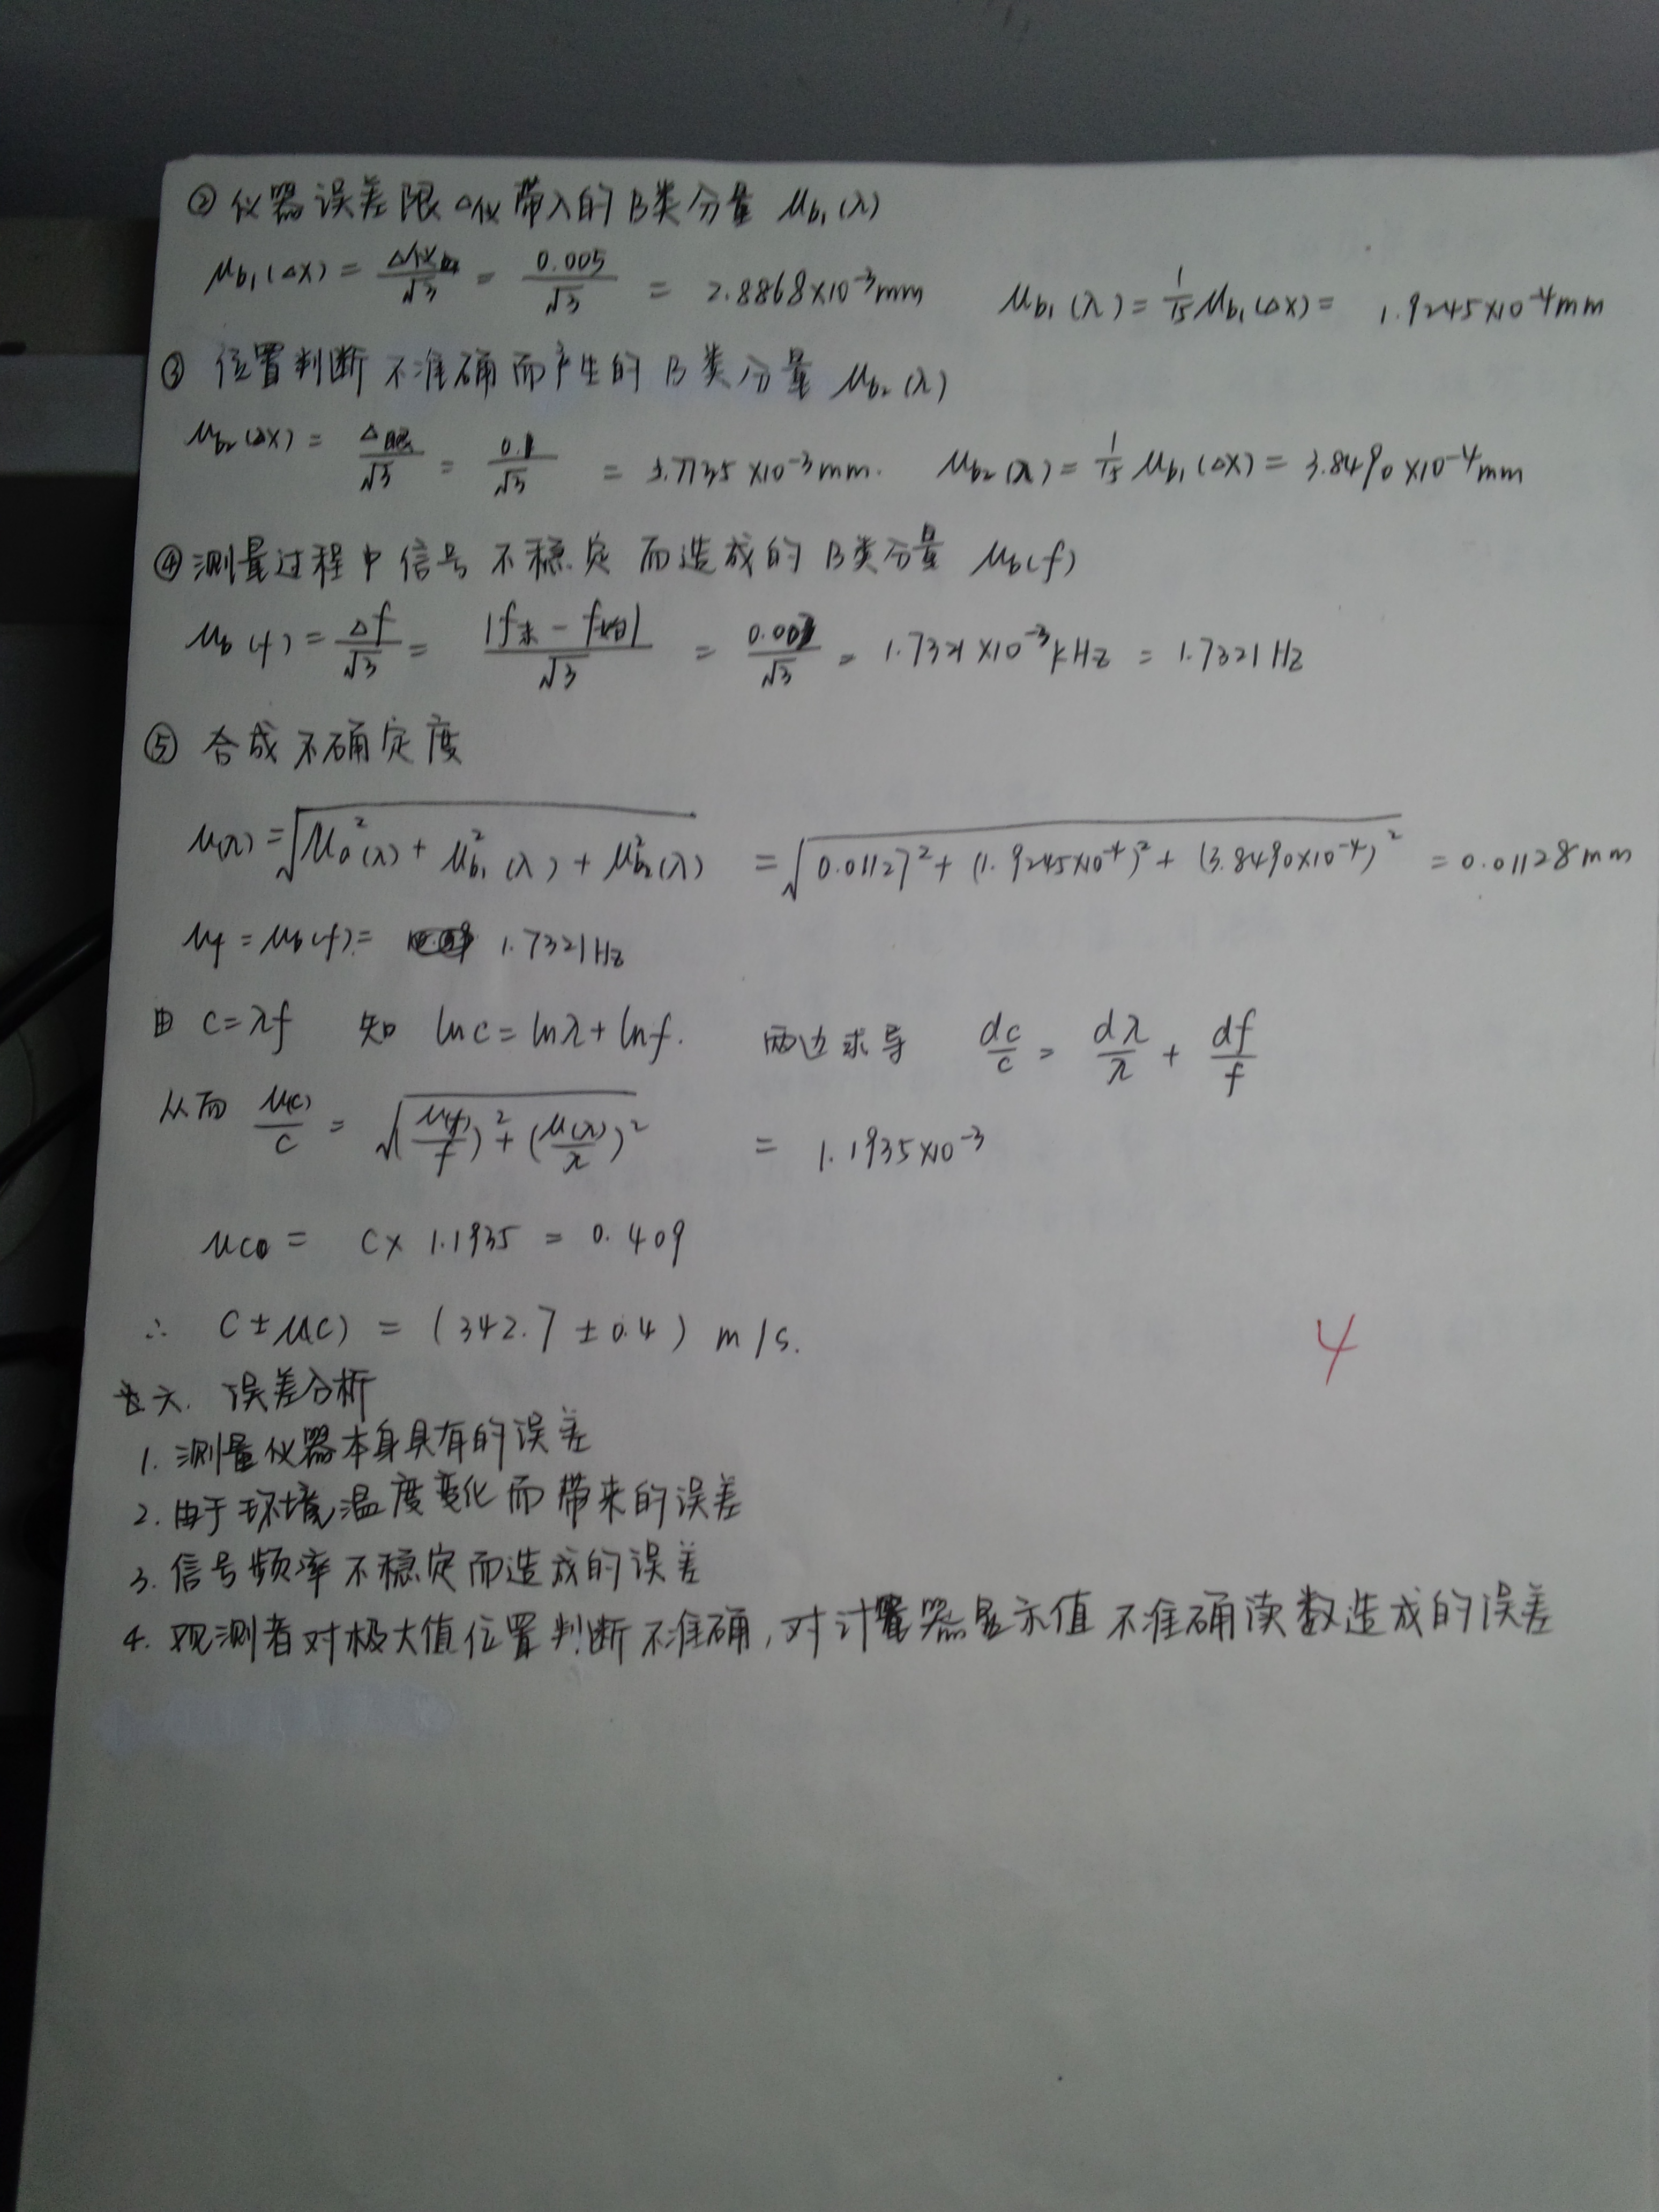 ② 仪器误差限△仪带入的B类分量 μb₁(λ)
μb₁(△x) = △仪/√3 = 0.005/√3 = 2.8868×10⁻³mm μb₁(λ) = 1/15 μb₁(△x) = 1.9245×10⁻⁴mm
③ 位置判断不准确而产生的B类分量 μb₂(λ)
μb₂(△x) = △/√3 = 0.1/√3 = 5.7735×10⁻³mm. μb₂(λ) = 1/15 μb₁(△x) = 3.8490×10⁻⁴mm
④ 测量过程中信号不稳定而造成的B类分量 μb(f)
μb(f) = △f/√3 = |f末 - f始|/√3 = 0.003/√3 = 1.7321×10⁻³kHz = 1.7321Hz
⑤ 合成不确定度
μ(λ) = √(μa²(λ) + μb₁²(λ) + μb₂²(λ)) = √(0.01127² + (1.9245×10⁻⁴)² + (3.8490×10⁻⁴)²) = 0.01128mm
μf = μb(f) = 1.7321Hz
由 c=λf 知 lnc = lnλ + lnf. 两边求导 dc/c = dλ/λ + df/f
从而 μ(c)/c = √((μ(f)/f)² + (μ(λ)/λ)²) = 1.1935×10⁻³
μc = c× 1.1935 = 0.409
∴ c±μ(c) = (342.7 ±0.4) m/s.
4
六. 误差分析
1. 测量仪器本身具有的误差
2. 由于环境温度变化而带来的误差
3. 信号频率不稳定而造成的误差
4. 观测者对极大值位置判断不准确,对计量器显示值不准确读数造成的误差